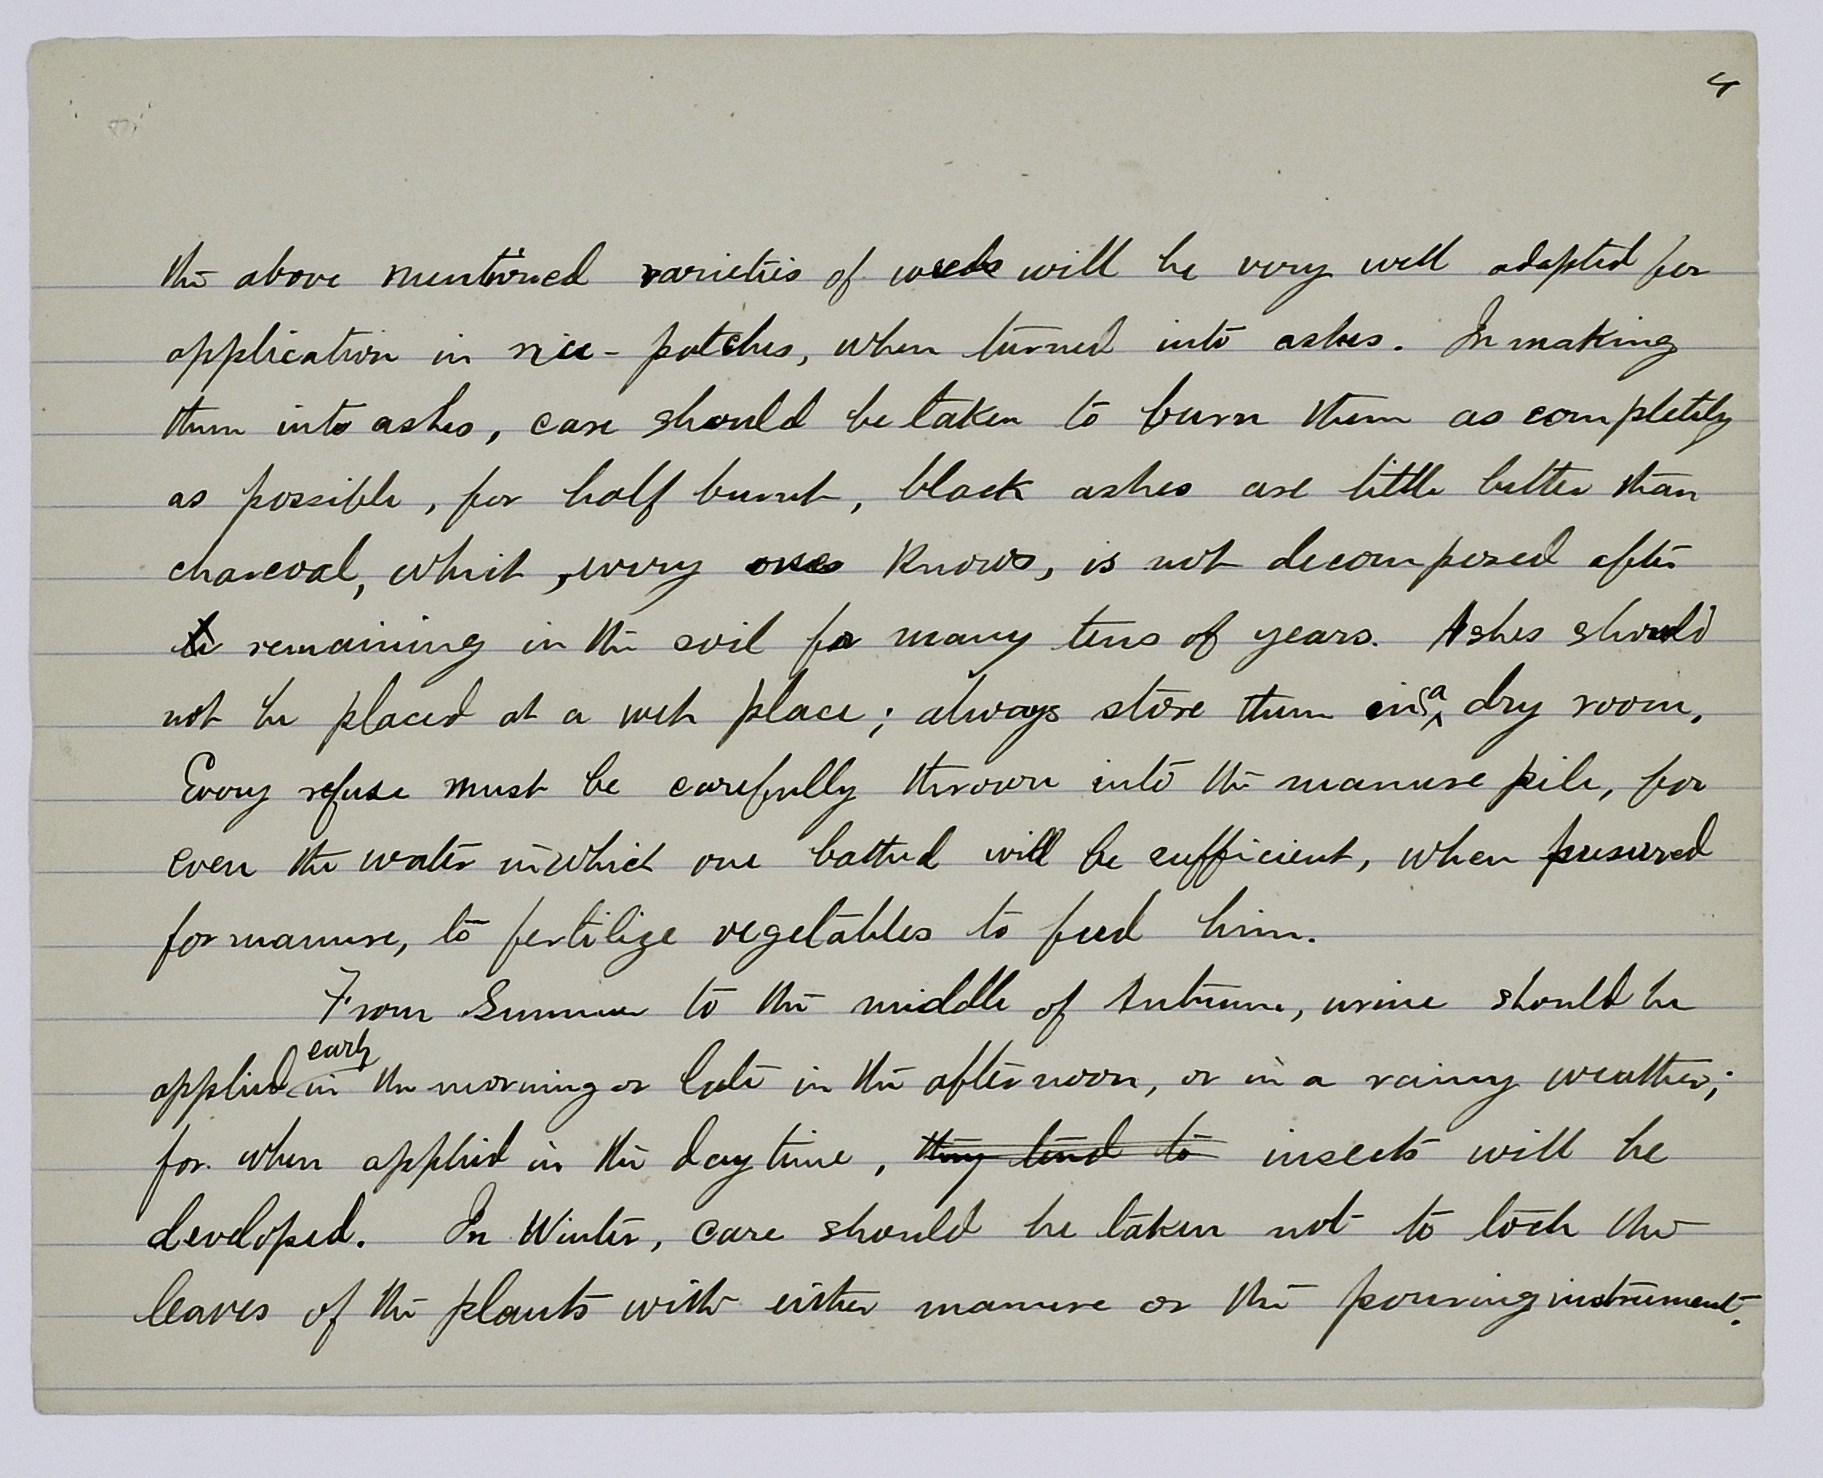 4
the above mentioned varieties of weeds will be very well adapted for
application in rice-patches, when turned into ashes. In making
them into ashes, care should be taken to burn them as completely
as possible, for half burnt, black ashes are little better than
charcoal, which, every ones knows, is not decomposed after
remaining in the soil for many tens of years. Ashes should
not be placed at a wet place; always store them in a dry room.
Every refuse must be carefully thrown into the manure pile, for
even the water in which one bathed will be sufficient, when preserved
for manure, to fertilize vegetables to feed him.
From Summer to the middle of Autumn, urine should be
applied early in the morning or late in the afternoon, or in a rainy weather;
for when applied in the day time, they tend to insects will be
developed. In Winter, care should be taken not to toch the
leaves of the plants with either manure or the pouring instrument.